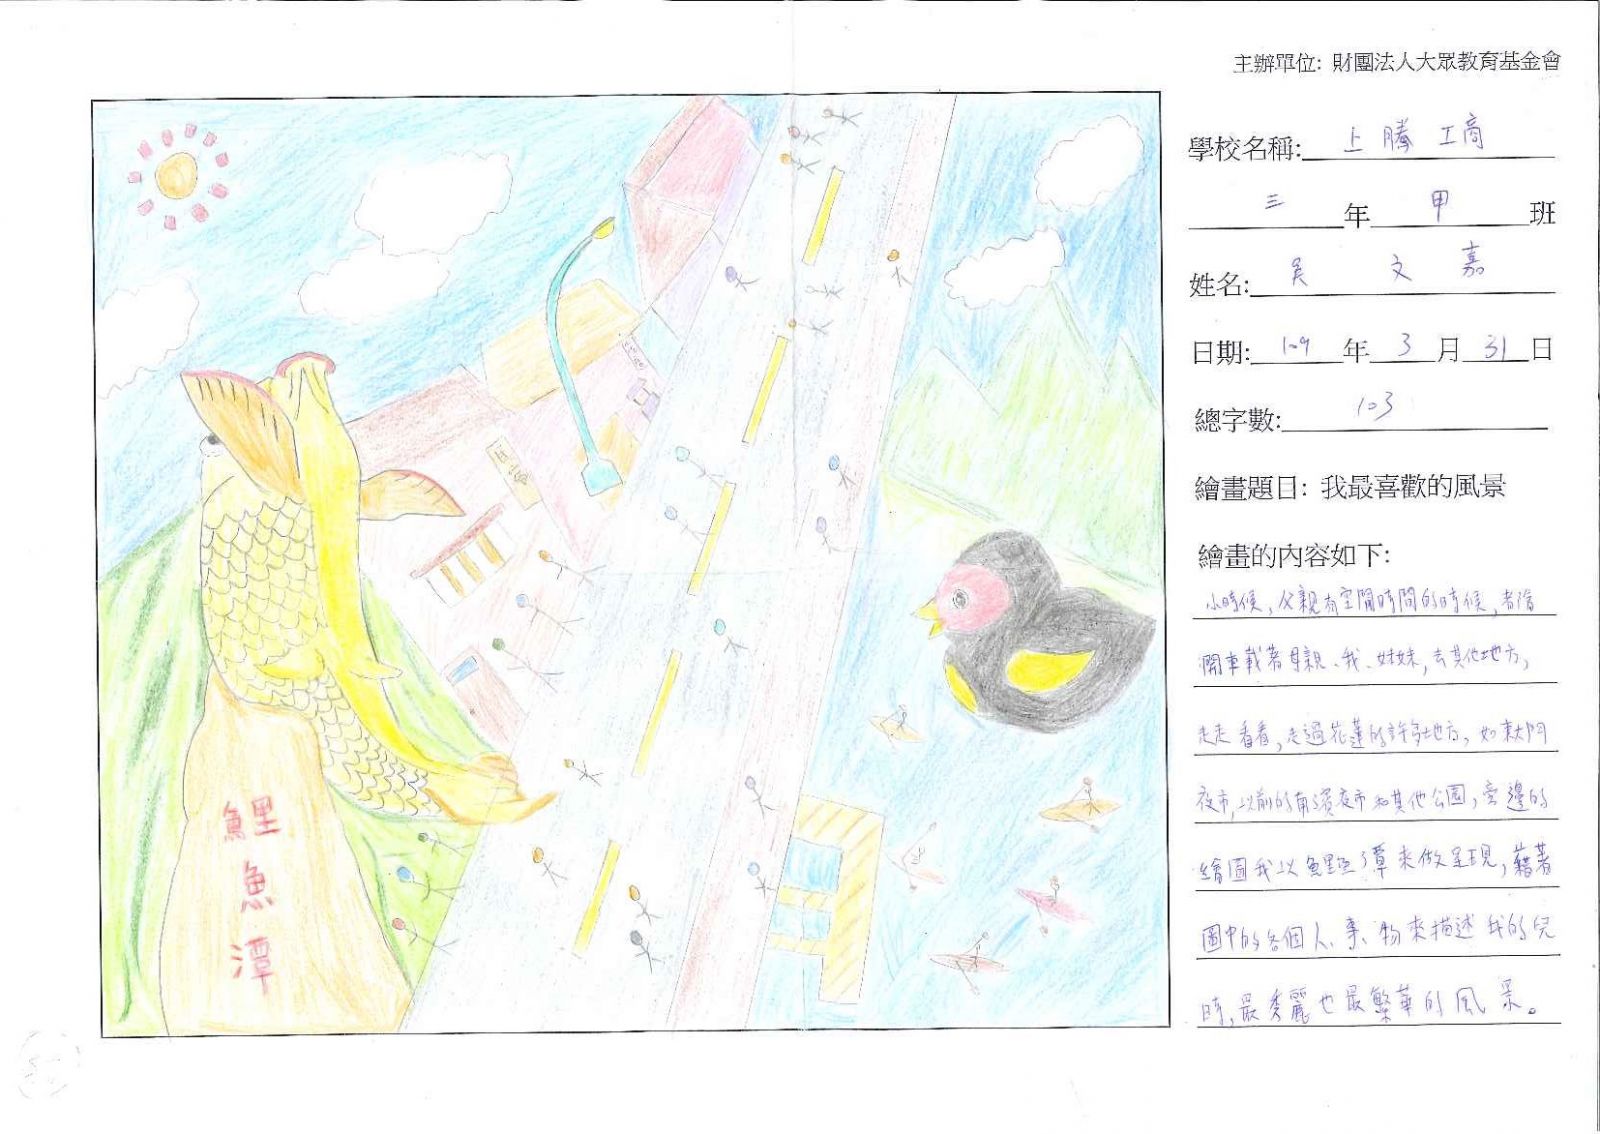 主辦單位: 財團法人大眾教育基金會
學校名稱: 上騰工商
三年甲班
姓名: 吳文嘉
日期: 109年3月31日
總字數: 103
繪畫題目: 我最喜歡的風景
繪畫的內容如下:
小時候,父親有空閒時間的時候,都會
開車載著母親、我、妹妹,去其他地方,
走走看看,走過花蓮的許多地方,如東大門
夜市,以前的南濱夜市和其他公園,旁邊的
繪圖我以鯉魚潭來做呈現,藉著
圖中的各個人、事、物來描述我的兒
時,最秀麗也最繁華的風景。
鯉魚潭